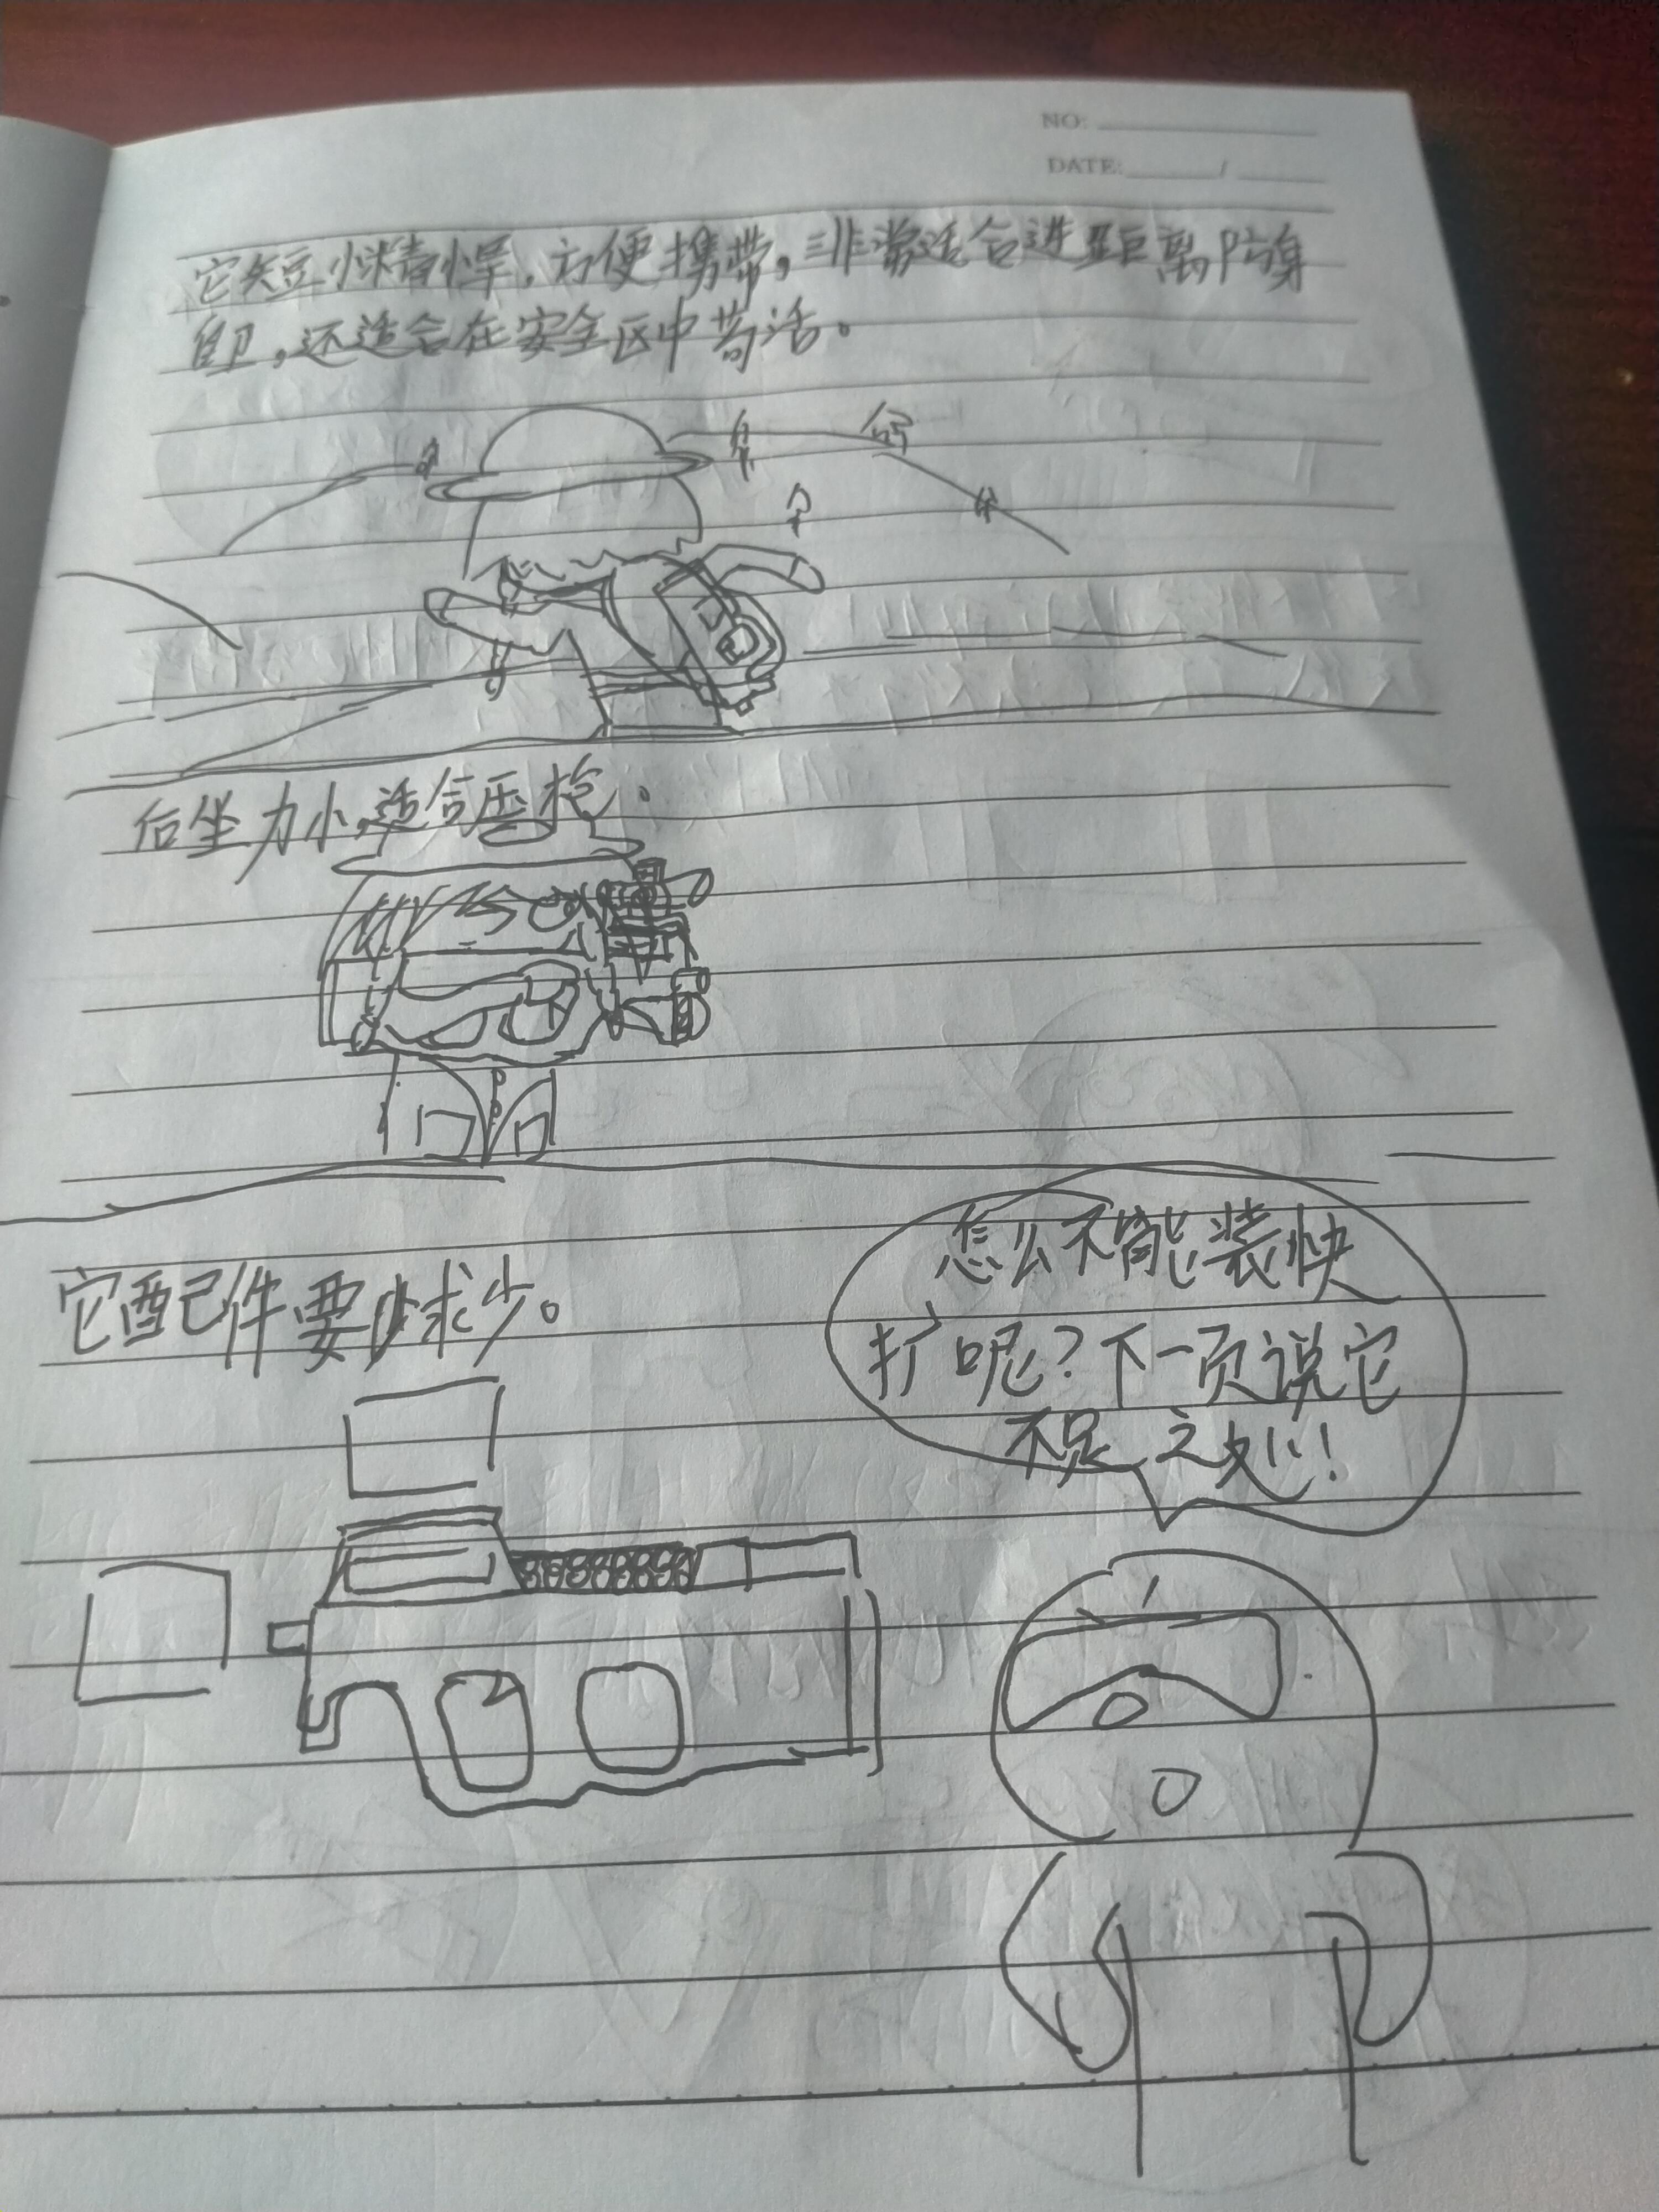 NO:
DATE: /
它短小精悍，方便携带，非常适合进距离防身
自卫，还适合在安全区中苟活。
后坐力小，适合压枪。
它配件要求少。
怎么不能装快
扩呢？下一页说它
不足之处！